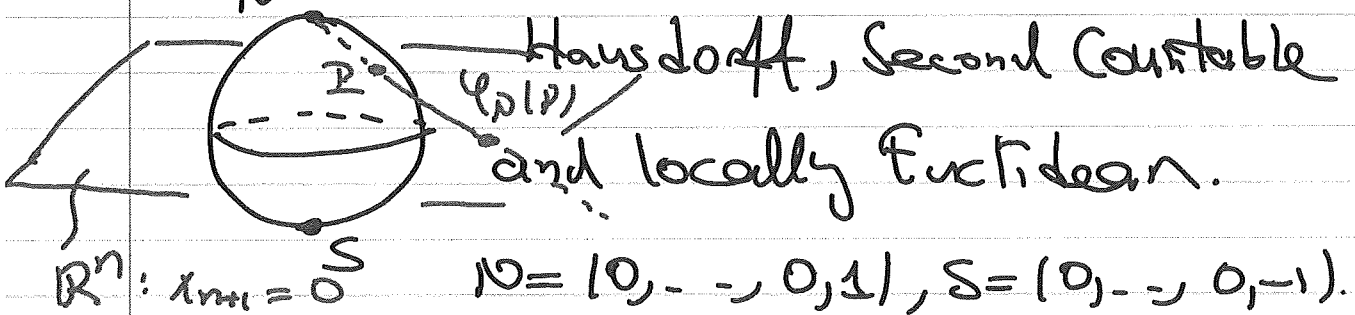 N
Hausdorff, Second Countable
P
φ_N(P)
and locally Euclidean.
S
ℝⁿ: x_{n+1} = 0
N = (0, - -, 0, 1), S = (0, - -, 0, -1).